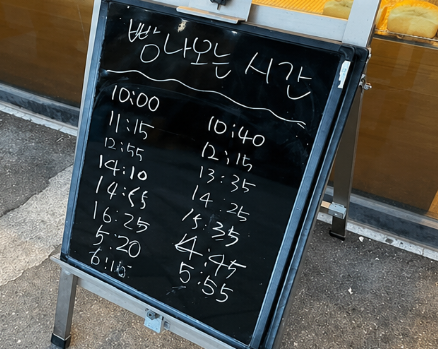 빵나오는 시간
10:00
11:15
12:55
14:10
14:55
16:25
5:20
6:15
10:40
12:15
13:35
14:25
15:35
4:45
5:55